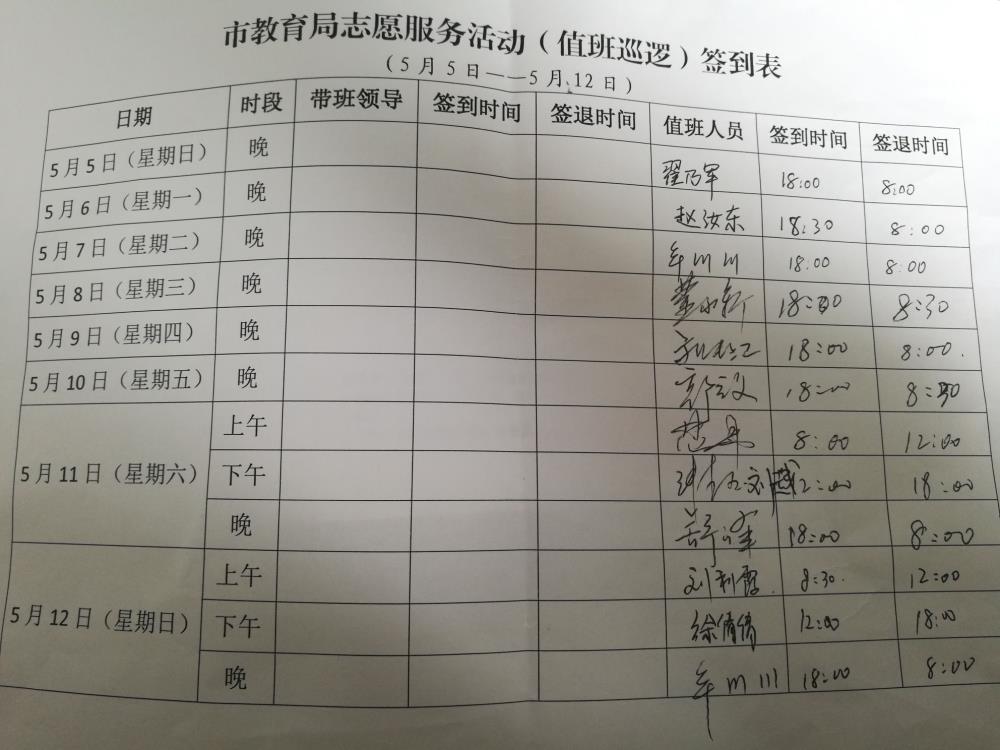 市教育局志愿服务活动（值班巡逻）签到表
（5月5日——5月12日）
日期 时段 带班领导 签到时间 签退时间 值班人员 签到时间 签退时间
5月5日（星期日） 晚 翟乃军 18:00 8:00
5月6日（星期一） 晚 赵汝东 18:30 8:00
5月7日（星期二） 晚 牟川川 18:00 8:00
5月8日（星期三） 晚 8:30
5月9日（星期四） 晚 18:00 8:00.
5月10日（星期五） 晚
5月11日（星期六） 上午 8:00 12:00
下午 12:00 18:00
晚 18:00 8:00
5月12日（星期日） 上午 刘利霞 8:30. 12:00
下午 徐倩倩 12:00 18:00
晚 牟川川 18:00 8:00